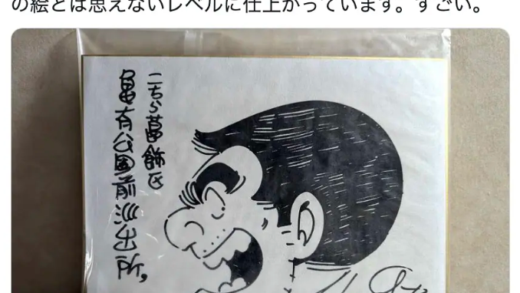 の絵とは思えないレベルに仕上がっています。すごい。
こちら葛飾区
亀有公園前派出所。